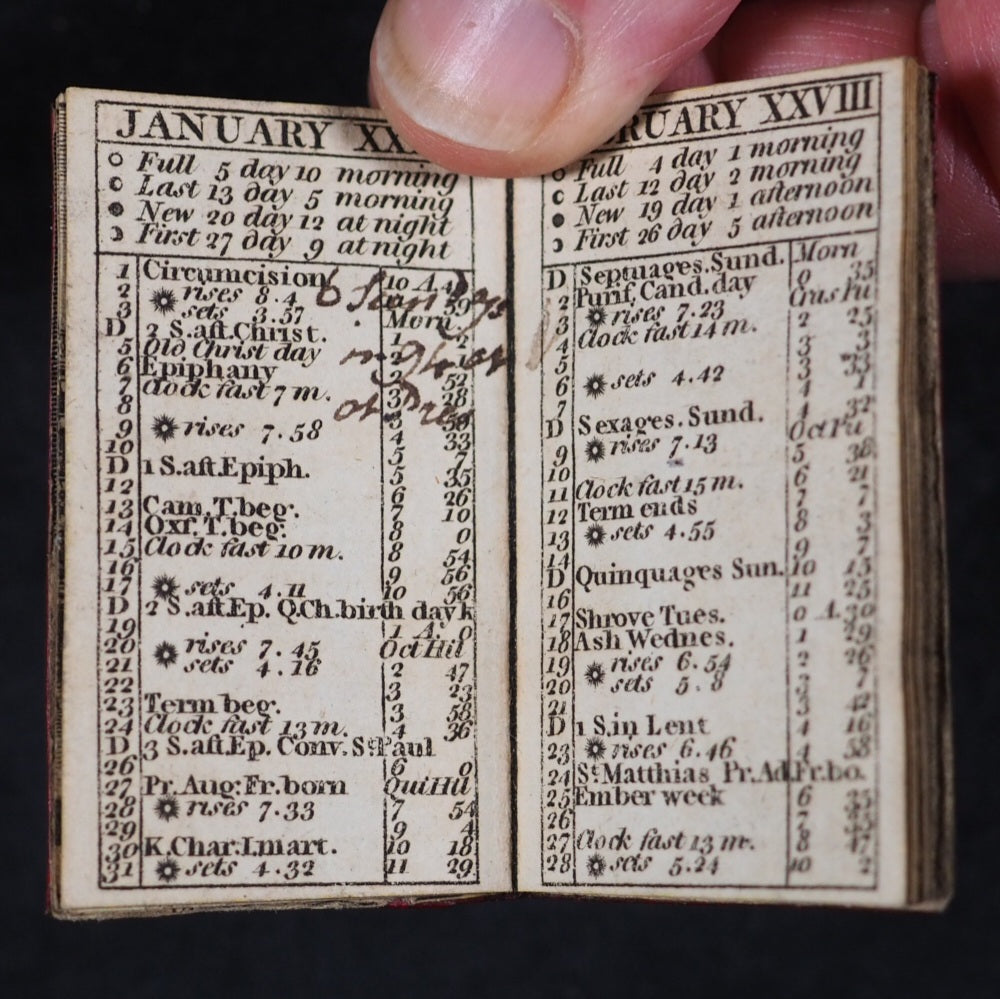 JANUARY XX
Full 5 day 10 morning
Last 13 day 5 morning
New 20 day 12 at night
First 27 day 9 at night
1 Circumcision 10 A.
2 rises 8.4 59
3 sets 3.57 Morn.
D 2 S.aft.Christ. 1 2
5 Old Christ day 2
6 Epiphany 2 52
7 Clock fast 7 m. 3 28
8 3 58
9 rises 7.58 4 33
10 5 7
D 1 S.aft.Epiph. 5 35
12 6 26
13 Cam.T.beg. 7 10
14 Oxf.T.beg. 8 0
15 Clock fast 10 m. 8 54
16 9 56
17 sets 4.11 10 56
D 2 S.aft.Ep. Q.Ch.birth day k
19 1 A. 0
20 rises 7.45 Oct Hil
21 sets 4.16 2 47
22 3 23
23 Term beg. 3 58
24 Clock fast 13 m. 4 36
D 3 S.aft.Ep. Conv. St Paul
26 6 0
27 Pr.Aug:Fr.born Qui Hil
28 rises 7.33 7 54
29 9 4
30 K.Char.I.mart. 10 18
31 sets 4.32 11 29
6 Sundays
RUARY XXVIII
Full 4 day 1 morning
Last 12 day 2 morning
New 19 day 1 afternoon
First 26 day 5 afternoon
D Septuages.Sund. Morn
2 Purif.Cand.day 0 35
3 rises 7.23 Cras Pu
4 Clock fast 14 m. 2 25
5 3 3
6 sets 4.42 3 33
7 4 1
D Sexages.Sund. 4 32
9 rises 7.13 Oct Pu
10 5 36
11 Clock fast 15 m. 6 21
12 Term ends 7 7
13 sets 4.55 8 3
14 9 7
D Quinquages Sun. 10 15
16 11 25
17 Shrove Tues. 0 A.30
18 Ash Wednes. 1 29
19 rises 6.54 2 26
20 sets 5.8 3 7
21 3 42
D 1 S.in Lent 4 16
23 rises 6.46 4 58
24 St Matthias Pr.Ad.Fr.bo.
25 Ember week 6 35
26 7
27 Clock fast 13 m. 8 47
28 sets 5.24 10 2